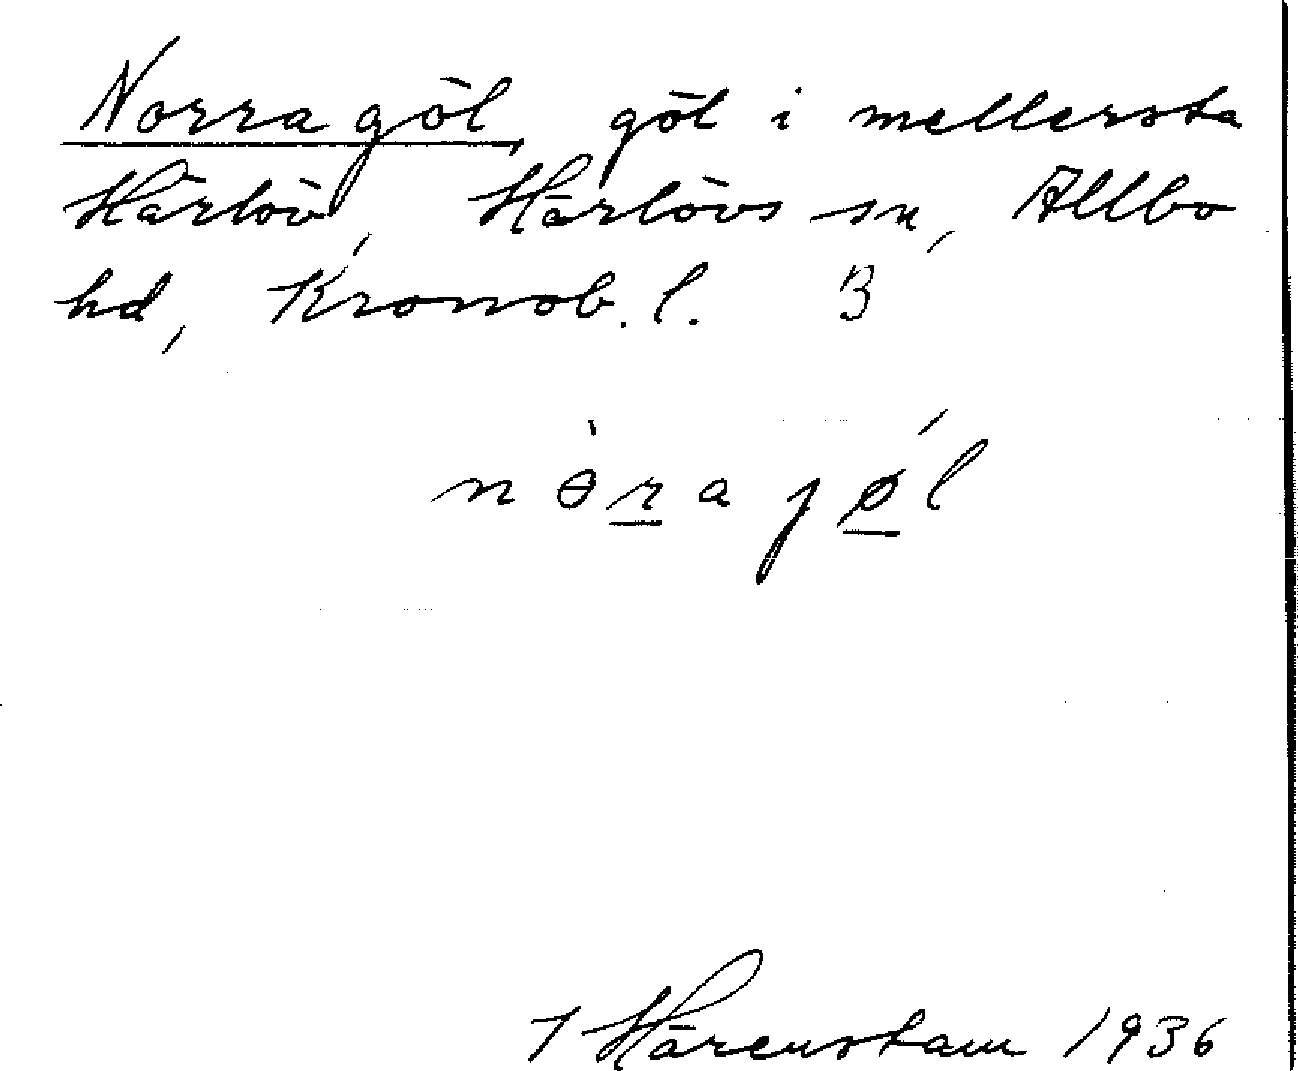 Norra göl, göl i mellersta
Härlöv, Härlövs sn, Allbo
hd, Kronob. l. B
nɵ̀ra jǿl
Härenstam 1936